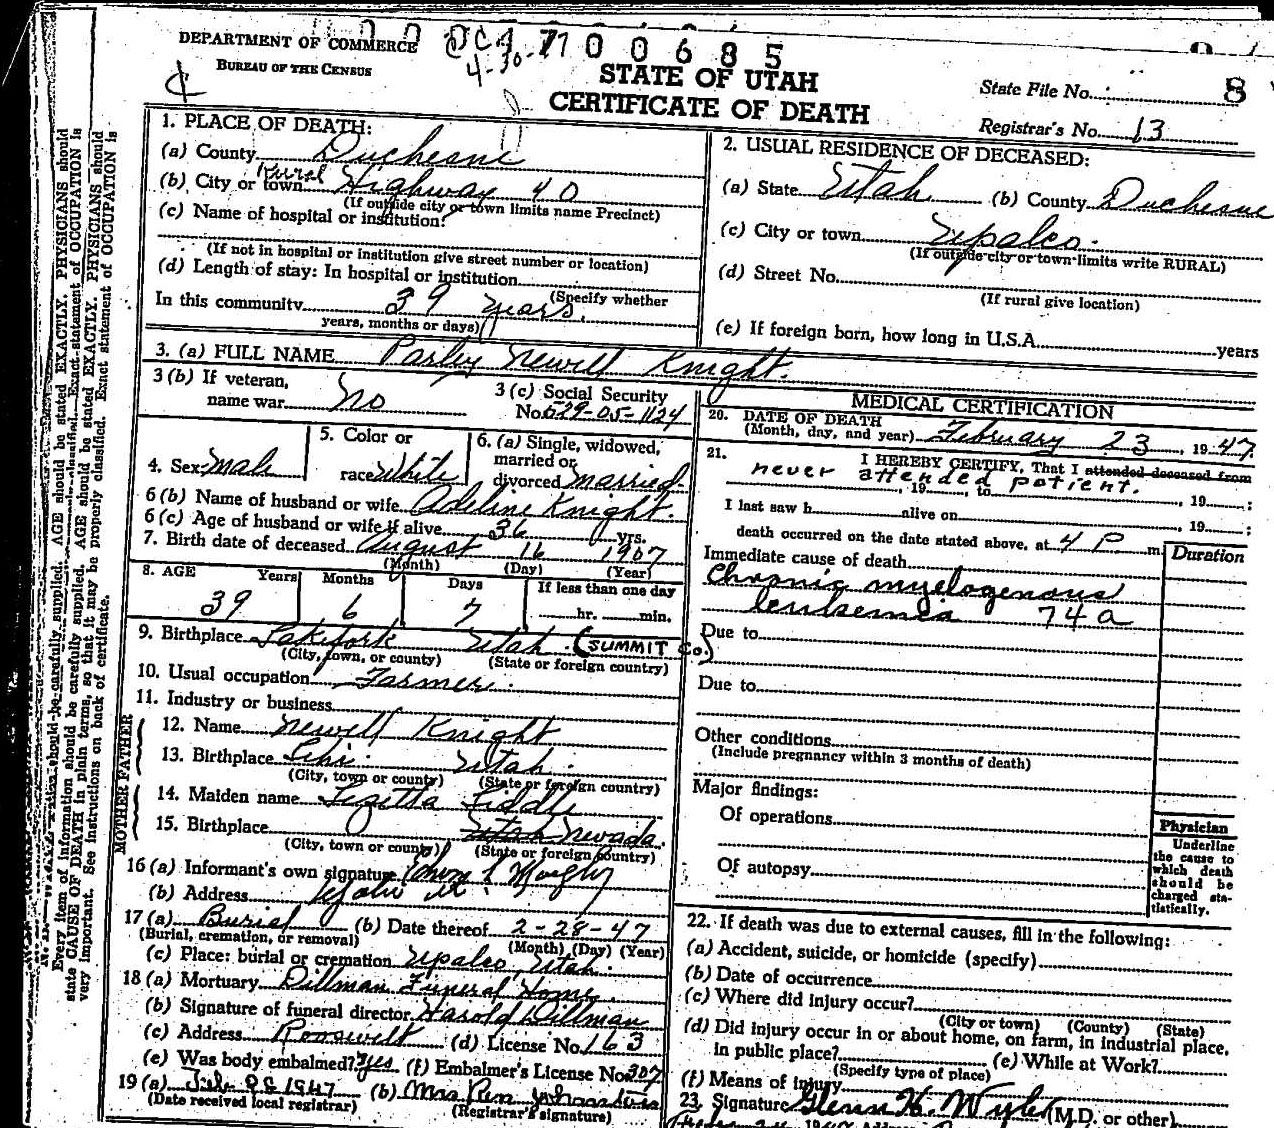 DEPARTMENT OF COMMERCE
BUREAU OF THE CENSUS
4-30-
7700685
STATE OF UTAH
CERTIFICATE OF DEATH
State File No. 8
Registrar's No. 13
1. PLACE OF DEATH:
(a) County Duchesne
(b) City or town Rural Highway 40
(If outside city or town limits name Precinct)
(c) Name of hospital or institution:
(If not in hospital or institution give street number or location)
(d) Length of stay: In hospital or institution
(Specify whether
In this community 39 years.
years, months or days)
2. USUAL RESIDENCE OF DECEASED:
(a) State Utah (b) County Duchesne
(c) City or town Upalco.
(If outside city or town limits write RURAL)
(d) Street No.
(If rural give location)
(e) If foreign born, how long in U.S.A. years
3. (a) FULL NAME Parley Newell Knight.
3 (b) If veteran,
name war No
3 (c) Social Security
No. 529-05-1124
4. Sex Male
5. Color or
race White
6. (a) Single, widowed,
married or
divorced married
6 (b) Name of husband or wife Adeline Knight.
6 (c) Age of husband or wife if alive 36 yrs.
7. Birth date of deceased August 16 1907
(Month) (Day) (Year)
8. AGE Years Months Days If less than one day
39 6 7 hr. min.
9. Birthplace Lakefork Utah. (SUMMIT Co.)
(City, town, or county) (State or foreign country)
10. Usual occupation Farmer.
11. Industry or business
FATHER
12. Name Newell Knight
13. Birthplace Lehi Utah.
(City, town or county) (State or foreign country)
MOTHER
14. Maiden name
15. Birthplace Utah Nevada.
(City, town or county) (State or foreign country)
16 (a) Informant's own signature
(b) Address
17 (a) Burial (b) Date thereof 2-28-47
(Burial, cremation, or removal) (Month) (Day) (Year)
(c) Place: burial or cremation Upalco, Utah.
18 (a) Mortuary Dillman Funeral Home.
(b) Signature of funeral director Harold Dillman
(c) Address Roosevelt (d) License No. 163
(e) Was body embalmed? Yes (f) Embalmer's License No. 307
19 (a) 1947 (b) Mrs
(Date received local registrar) (Registrar's signature)
MEDICAL CERTIFICATION
20. DATE OF DEATH
(Month, day, and year) February 23, 1947
21. I HEREBY CERTIFY, That I attended deceased from
never attended patient.
, 19 , to , 19 ;
I last saw h alive on , 19 ;
death occurred on the date stated above, at 4 P m.
Immediate cause of death Duration
Chronic myelogenous
leukemia 74a
Due to
Due to
Other conditions
(Include pregnancy within 3 months of death)
Major findings:
Of operations
Of autopsy
Physician
Underline
the cause to
which death
should be
charged sta-
tistically.
22. If death was due to external causes, fill in the following:
(a) Accident, suicide, or homicide (specify)
(b) Date of occurrence
(c) Where did injury occur?
(City or town) (County) (State)
(d) Did injury occur in or about home, on farm, in industrial place,
in public place? (e) While at Work?
(Specify type of place)
(f) Means of injury
23. Signature Glenn (M.D. or other)
Every item of information should be carefully supplied. AGE should be stated EXACTLY. PHYSICIANS should
state CAUSE OF DEATH in plain terms, so that it may be properly classified. Exact statement of OCCUPATION is
very important. See instructions on back of certificate.